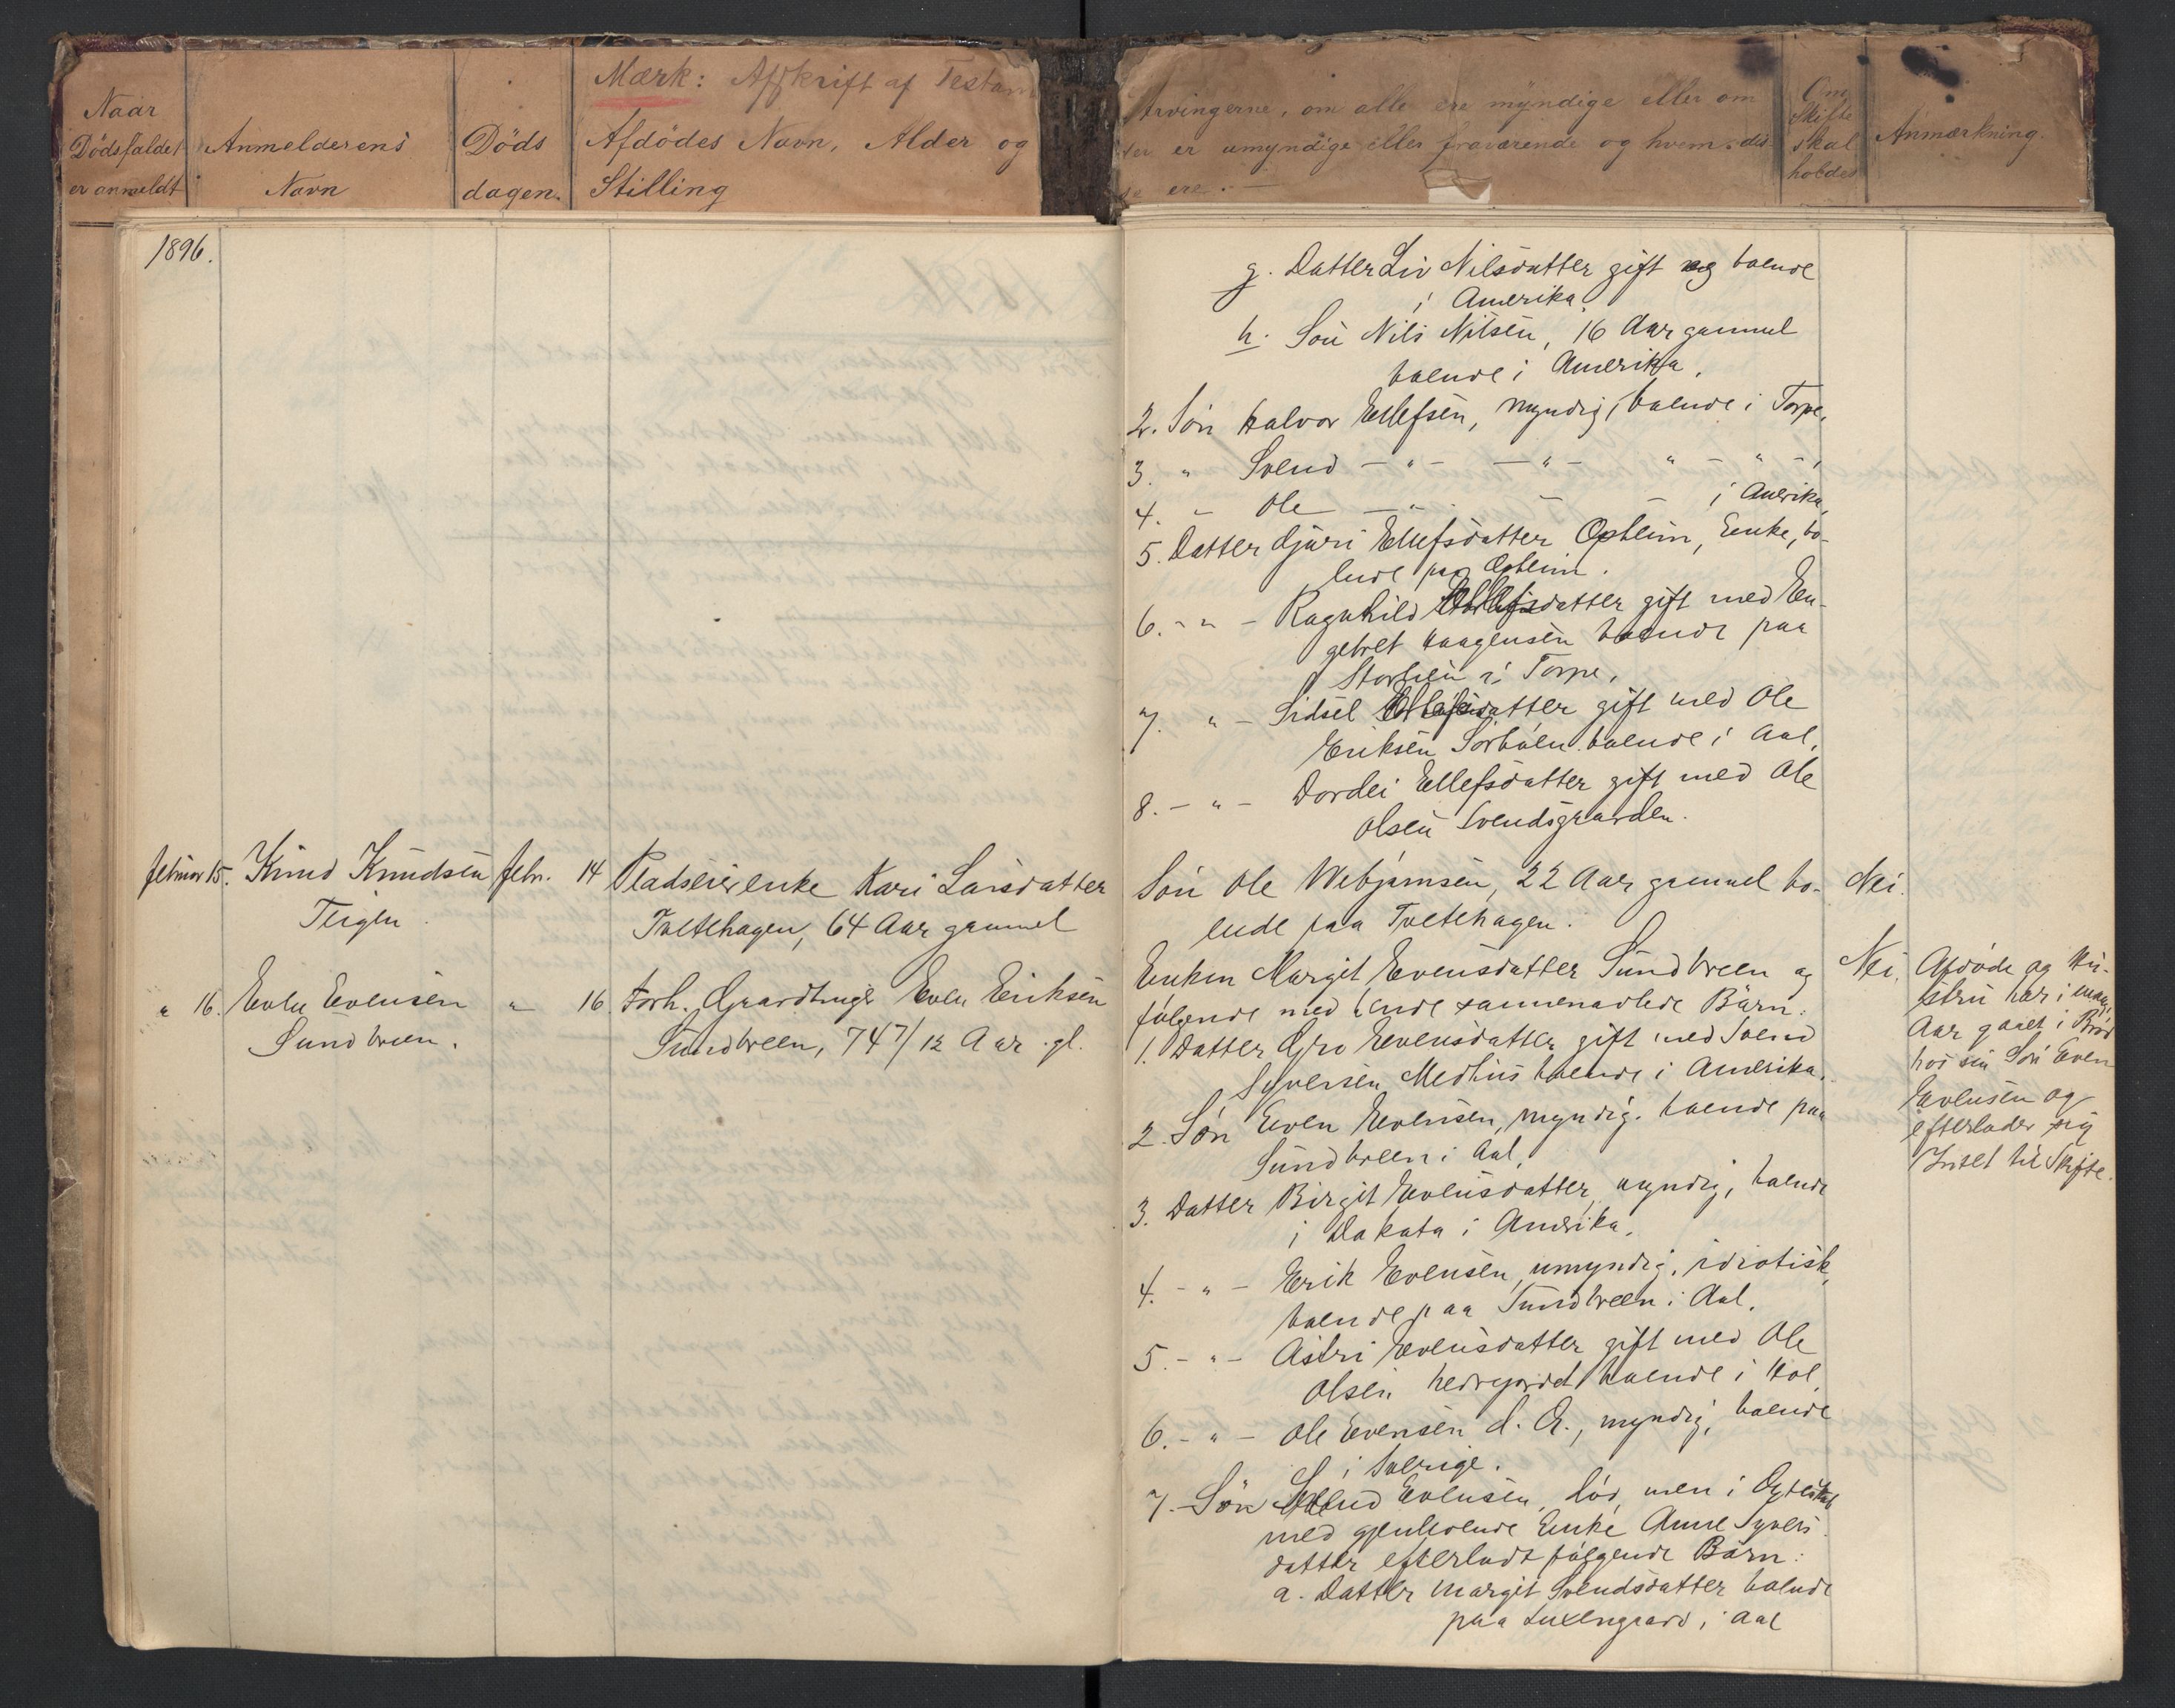 Mærk: Afskrift af
Naar
Dödsfaldet
er anmeldt
Anmelderens
Navn
Döds
dagen.
Afdödes Navn, Alder og
Stilling
Arvingerne, om alle ere myndige eller om
der er umyndige eller fraværende og hvem dis-
se ere. —
Om
Skifte
skal
holdes
Anmærkning.
1896.
g. Datter Liv Nilsdatter gift og boende
i Amerika.
h. Sön Nils Nilsen, 16 Aar gammel
boende i Amerika.
2. Sön Halvor Ellefsen, myndig, boende i Torpe,
3. " Svend — " — — " — " — " —,
4. — Ole — " — — i Amerika,
5. Datter Gjöri Ellefsdatter Opheim, Enke, bo-
ende paa Opheim.
6. - " - Ragnhild Ellefsdatter gift med En-
gebret Haagensen boende paa
i Torpe.
7. " - Sidsel Ellefsdatter gift med Ole
Eriksen Sörböen boende i Aal.
8. - " - Dordei Ellefsdatter gift med Ole
Olsen Svendsgaarden.
februar 15. Knud Knudsen
Teigen.
febr. 14
Pladseierenke Kari Larsdatter
Tveitehagen, 64 Aar gammel
Sön Ole Webjørnsen, 22 Aar gammel bo-
ende paa Tveitehagen.
Nei.
" 16. Even Evensen
Sundbreen.
" 16.
Forh. Gaardbruger Even Eriksen
Sundbreen, 74 7/12 Aar gl.
Enken Margit Evensdatter Sundbreen og
følgende med hende sammenavlede Børn:
1. Datter Gro Evensdatter gift med Svend
Syversen Medhus boende i Amerika.
2. Sön Even Evensen, myndig, boende paa
Sundbreen i Aal.
3. Datter Birgit Evensdatter, myndig, boende
i Dakota i Amerika.
4. - " - Erik Evensen, umyndig, idiotisk,
boende paa Sundbreen i Aal.
5. - " - Astri Evensdatter gift med Ole
Olsen boende i Hol
6. - " - Ole Evensen d. Æ., myndig, boende
i Sverige.
7. Sön Svend Evensen, död, men i Ægteskab
med gjenlevende Enke Anne Syvers-
datter efterladt følgende Børn:
a. Datter Margit Svendsdatter boende
paa i Aal
Nei.
Afdöde og Hu-
stru har i mange
Aar gaaet i Bröd
hos sin Sön Even
Evensen og
efterlader sig
Intet til Skifte.